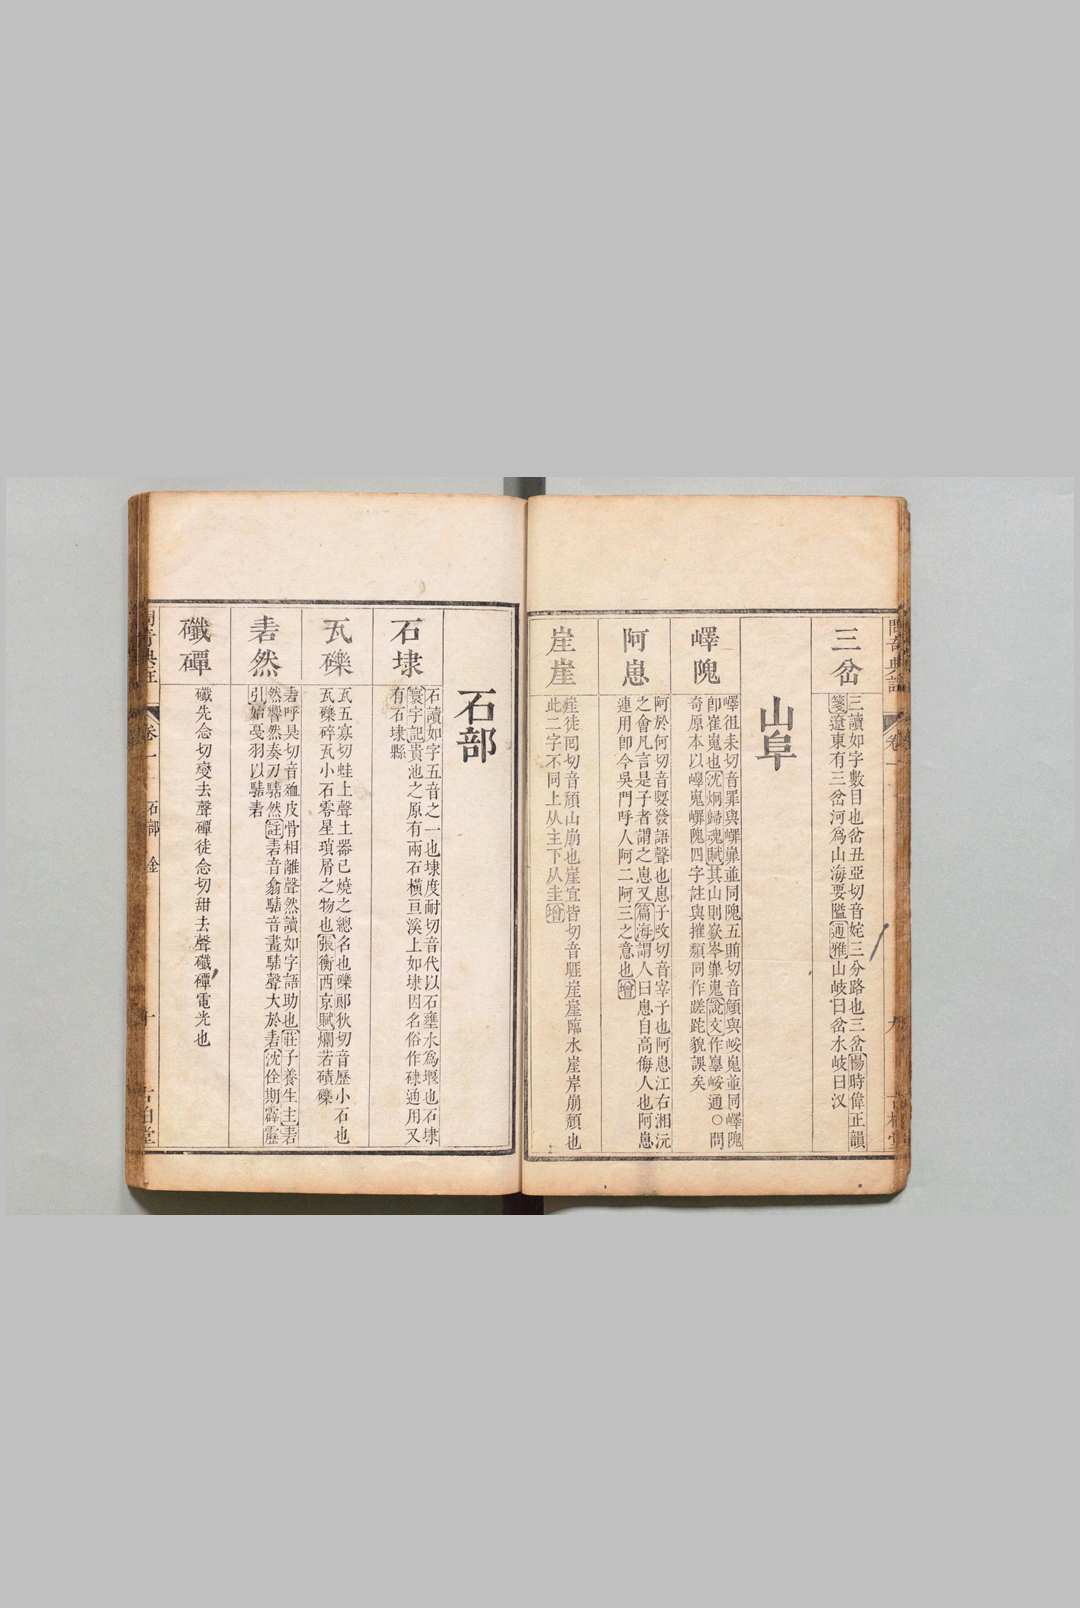 三岔
三讀如字數目也岔丑亞切音姹三分路也三岔楊時偉正韻
箋遼東有三岔河爲山海要隘通雅山岐曰岔水岐曰汊
山阜
嶧隗
嶧徂耒切音罪與㠑辠並同隗五賄切音頠與峞嵬並同嶧隗
卽崔嵬也沈炯歸魂賦其山則嶽岑辠嵬說文作辠峞通○問
奇原本以嶧嵬㠑隗四字註與摧頹同作蹉跎貌誤矣
阿崽
阿於何切音婀發語聲也崽子改切音宰子也阿崽江右湘沅
之會凡言是子者謂之崽又篇海謂人曰崽自高侮人也阿崽
連用卽今吳門呼人阿二阿三之意也增
崖崖
崖徒囘切音頹山崩也崖宜皆切音厓崖崖臨水崖岸崩頹也
此二字不同上从主下从圭增
石部
石埭
石讀如字五音之一也埭度耐切音代以石壅水爲堰也石埭
寰宇記貴池之原有兩石橫亘溪上如埭因名俗作硉通用又
有石埭縣
瓦礫
瓦五寡切蛙上聲土器已燒之總名也礫郎狄切音歷小石也
瓦礫碎瓦小石零星瑣屑之物也張衡西京賦爛若磧礫
砉然
砉呼狊切音殈皮骨相離聲然讀如字語助也莊子養生主砉
然嚮然奏刀騞然註砉音翕騞音畫騞聲大於砉沈佺期霹靂
引始戛羽以騞砉
礛磹
礛先念切燮去聲磹徒念切甜去聲礛磹電光也
卷一
石部
十
古柏堂